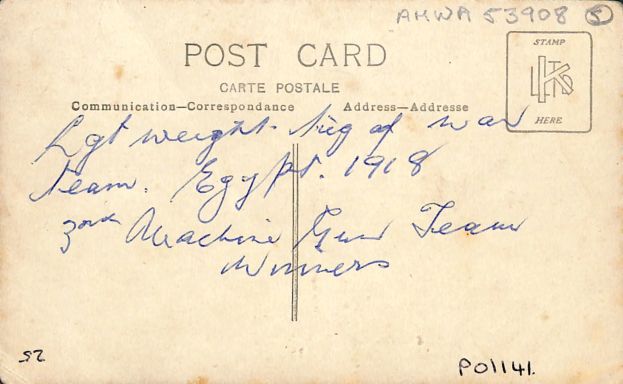 AHWA 53908 5
POST CARD
CARTE POSTALE
Communication—Correspondance Address—Addresse
STAMP
KLTD
HERE
Lgt weight. Tug of war
Team. Egypt. 1918
Machine Gun Team
Winners
52
PO1141.